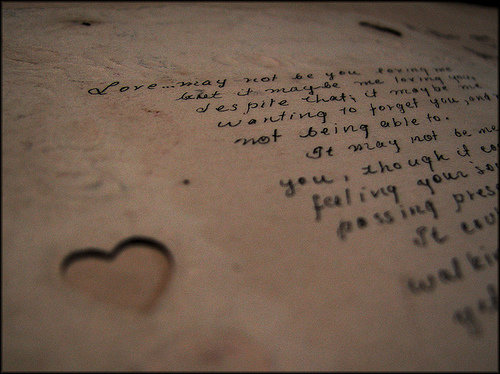 Love... may not be you loving me
but it maybe me loving you,
despite that, it maybe me
wanting to forget you, and
not being able to.
It may not be me
you, though it
feeling your
passing
It